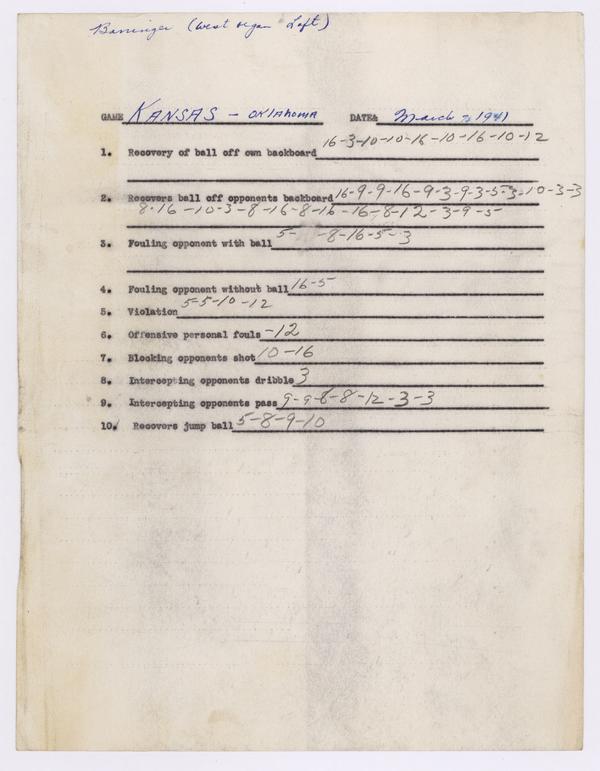 Barringer (West Organ Loft)
GAME KANSAS - OKLAHOMA DATE& March 7, 1941
1. Recovery of ball off own backboard 16-3-10-10-16-10-16-10-12
2. Recovers ball off opponents backboard 16-9-9-16-9-3-9-3-5-3-10-3-3
8-16-10-3-8-16-8-16-16-8-12-3-9-5
3. Fouling opponent with ball 5- -8-16-5-3
4. Fouling opponent without ball 16-5
5. Violation 5-5-10-12
6. Offensive personal fouls -12
7. Blocking opponents shot 10-16
8. Intercepting opponents dribble 3
9. Intercepting opponents pass 9-9-8-8-12-3-3
10. Recovers jump ball 5-8-9-10